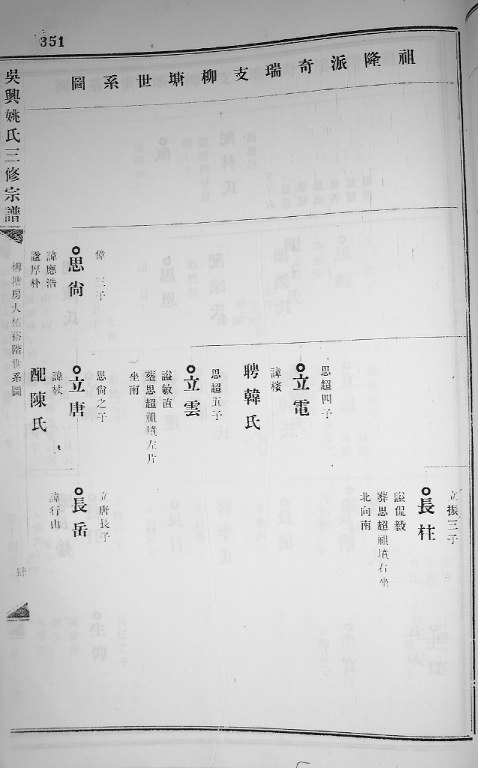 351
祖隆派奇瑞支柳塘世系圖
立振三子
長柱
諡侃毅
葬思超祖墳右坐
北向南
思超四子
立電
諱棧
聘韓氏
思超五子
立雲
諡敏直
葬思超祖墳左片
坐南
偉三子
思尙
諱應浩
諡厚朴
思尙之子
立唐
諱杖
配陳氏
立唐長子
長岳
諱行山
吳興姚氏三修宗譜